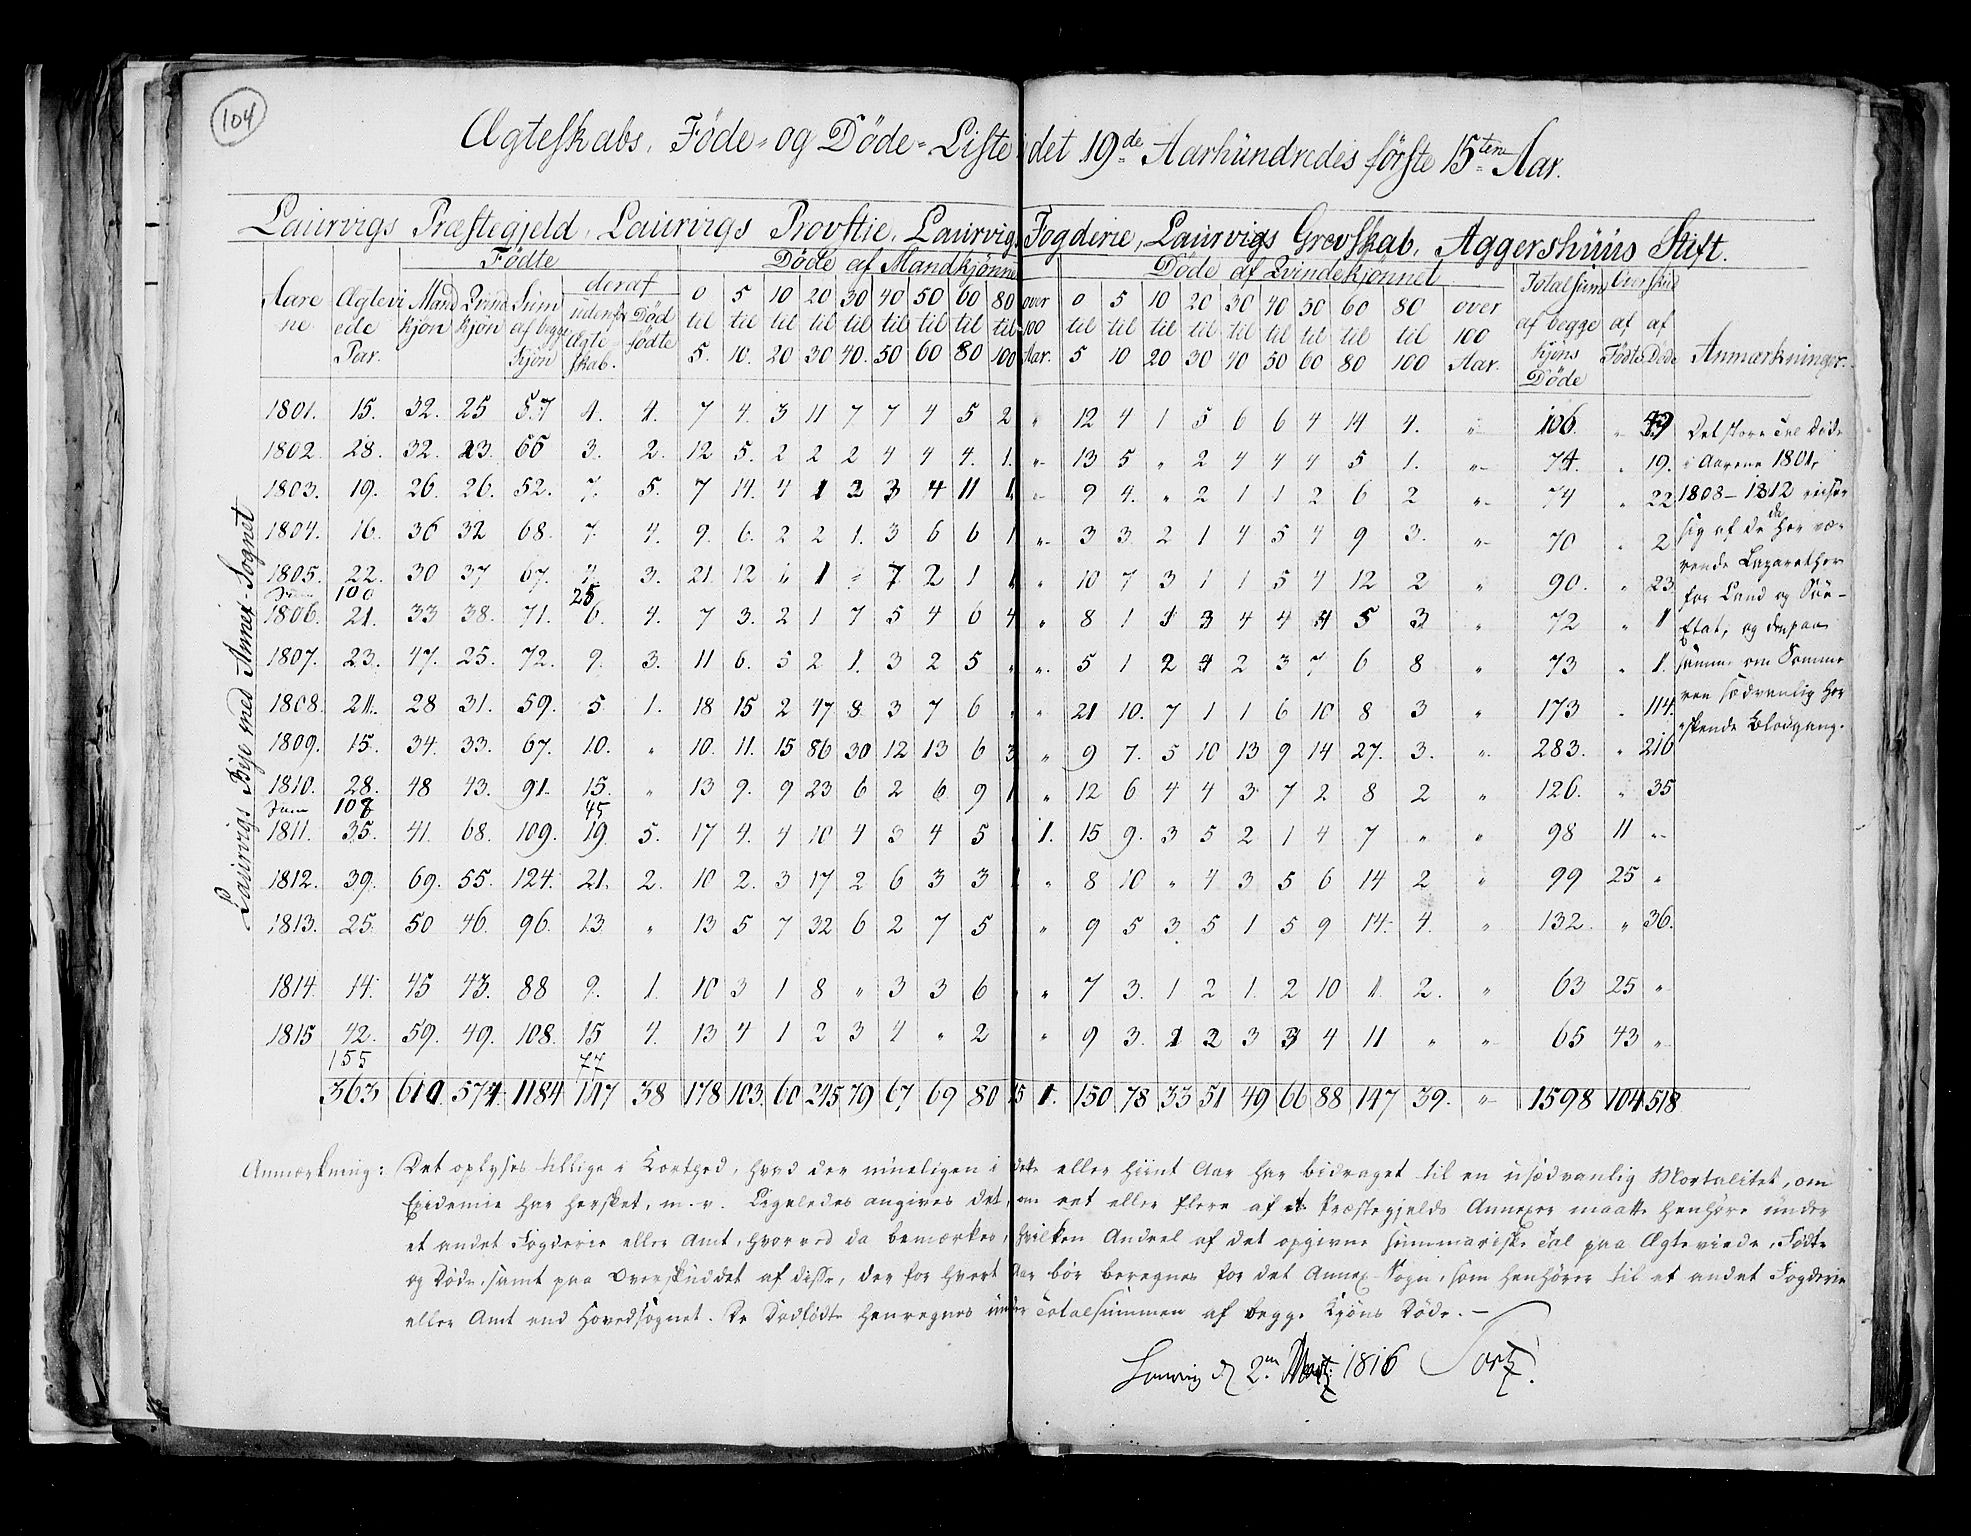 104
Ægteskabs, Föde- og Döde-Liste i det 19de Aarhundredes förste 15ten Aar.
Laurvigs Præstegjeld, Laurvigs Provstie, Laurvigs Fogderie, Laurvigs Grevskab, Aggershuus Stift.
Födte Döde af Mandkjönnet Döde af Qvindekjönnet
Aarene Ægteviede Par. Mandkjön Qvindekjön Sum af begge Kjön deraf udenfor Ægteskab. Dödfödte 0 til 5. 5 til 10. 10 til 20 20 til 30 30 til 40. 40 til 50 50 til 60 60 til 80 80 til 100 over 100 Aar. 0 til 5 5 til 10 10 til 20 20 til 30 30 til 40 40 til 50 50 til 60 60 til 80 80 til 100 over 100 Aar. Totalsum af begge Kjöns Döde Overskud af Födte af Döde Anmærkninger.
Laurvigs Bye med Annex-Sognet
1801. 15. 32. 25 57 4. 4. 7 4. 3 11 7 7 4 5 2 " 12 4 1 5 6 6 4 14 4. " 106. " 49
1802. 28. 32. 23. 55 3. 2. 12 5. 2 2 2 4 4 4. 1. " 13 5 " 2 4 4 4 5 1. " 74. " 19.
1803. 19. 26. 26. 52. 7. 5. 7 14. 4 1 2 3 4 11 1 " 9 4. " 2 1 1 2 6 2 " 74 " 22
1804. 16. 36 32 68. 7. 4. 9. 6. 2 2 1. 3 6 6 1 " 3 3 2 1 4 5 4 9 3. " 70 " 2
1805. 22. 30 37 67. 4. 3. 21. 12 " 1 " 7 2 1 1 " 10 7 3 1 1 5 4 12 2 " 90. " 23
Sum 100 25
1806. 21. 33 38. 71. 6. 4. 7 3. 2 1 7 5 4 6 4 " 8 1 1 3 4 4 4 5 3 " 72 " 1
1807. 23. 47. 25. 72. 9. 3. 11 6. 5 2 1. 3 2 5 " " 5 1 2 4 2 3 7 6 8 " 73 " 1.
1808. 21. 28 31. 59. 5 1. 18 15 2 47 8 3 7 6 " " 21 10. 7 1 1 6 10 8 3 " 173 " 114.
1809. 15. 34. 33. 67. 10. " 10. 11. 15 86 30 12 13 6 3 " 9 7. 5 10 13 9 14 27. 3. " 283. " 216
1810. 28. 48 43. 91. 15. " 13 9. 9 23 6 2 6 9 1 " 12 6 4 4 3 7 2 8 2 " 126. " 35
Sum 108 45
1811. 35. 41. 68. 109. 19 5. 17 4. 4 10 4 3 4 5 1. 15 9. 3 5 2 1 4 7 " " 98 11 "
1812. 39. 69. 55. 124. 21. 2. 10 2. 3 17 2 6 3 3 " 8 10 " 4 3 5 6 14 2 " 99 25 "
1813. 25. 50 46. 96. 13. " 13 5 7 32 6 2 7 5 " 9 5 3 5 1 5 9 14. 4. " 132. " 36.
1814. 14. 45 43. 88 9. 1. 10 3 1 8 " 3 3 6 " 7 3. 1 2 1. 2 10 11. 2. " 63 25 "
1815 42. 59. 49. 108. 15 4. 13 4 1 2 3 4 " 2 " 9 3. 1 2 3 3 4 11 " " 65 43 "
155 77
363 610 574. 1184 147 38 178 103. 60 245 79 67 69 80 15 1. 150 78 33 51 49 66 88 147 39. " 1598 104 518
Det store Tal Döde
i Aarene 1801,
1808-1812 reiser
sig af de da her væ-
rende Lazarether
for Land og Söe-
Etat, og den paa
samme om Somme
ren sædvanlig her
skende Blodgang.
Anmærkning: Det oplyses tillige i Korthed, hvad der rimeligen i dette eller hiint Aar har bidraget til en usædvanlig Mortalitet, om
Epidemie har hersket, m. v. Ligeledes angives det, om eet eller flere af et Præstegjelds Annexer maatte henhöre under
et andet Fogderie eller Amt, hvorved da bemærkes, hvilken Andeel af det opgivne summariske Tal paa Ægteviede, Födte
og Döde, samt paa Overskuddet af disse, der for hvert Aar bör beregnes for det Annex-Sogn, som henhörer til et andet Fogderie
eller Amt end Hovedsognet. De Dödfödte henregnes under Totalsummen af begge Kjöns Döde. —
2en Martz 1816